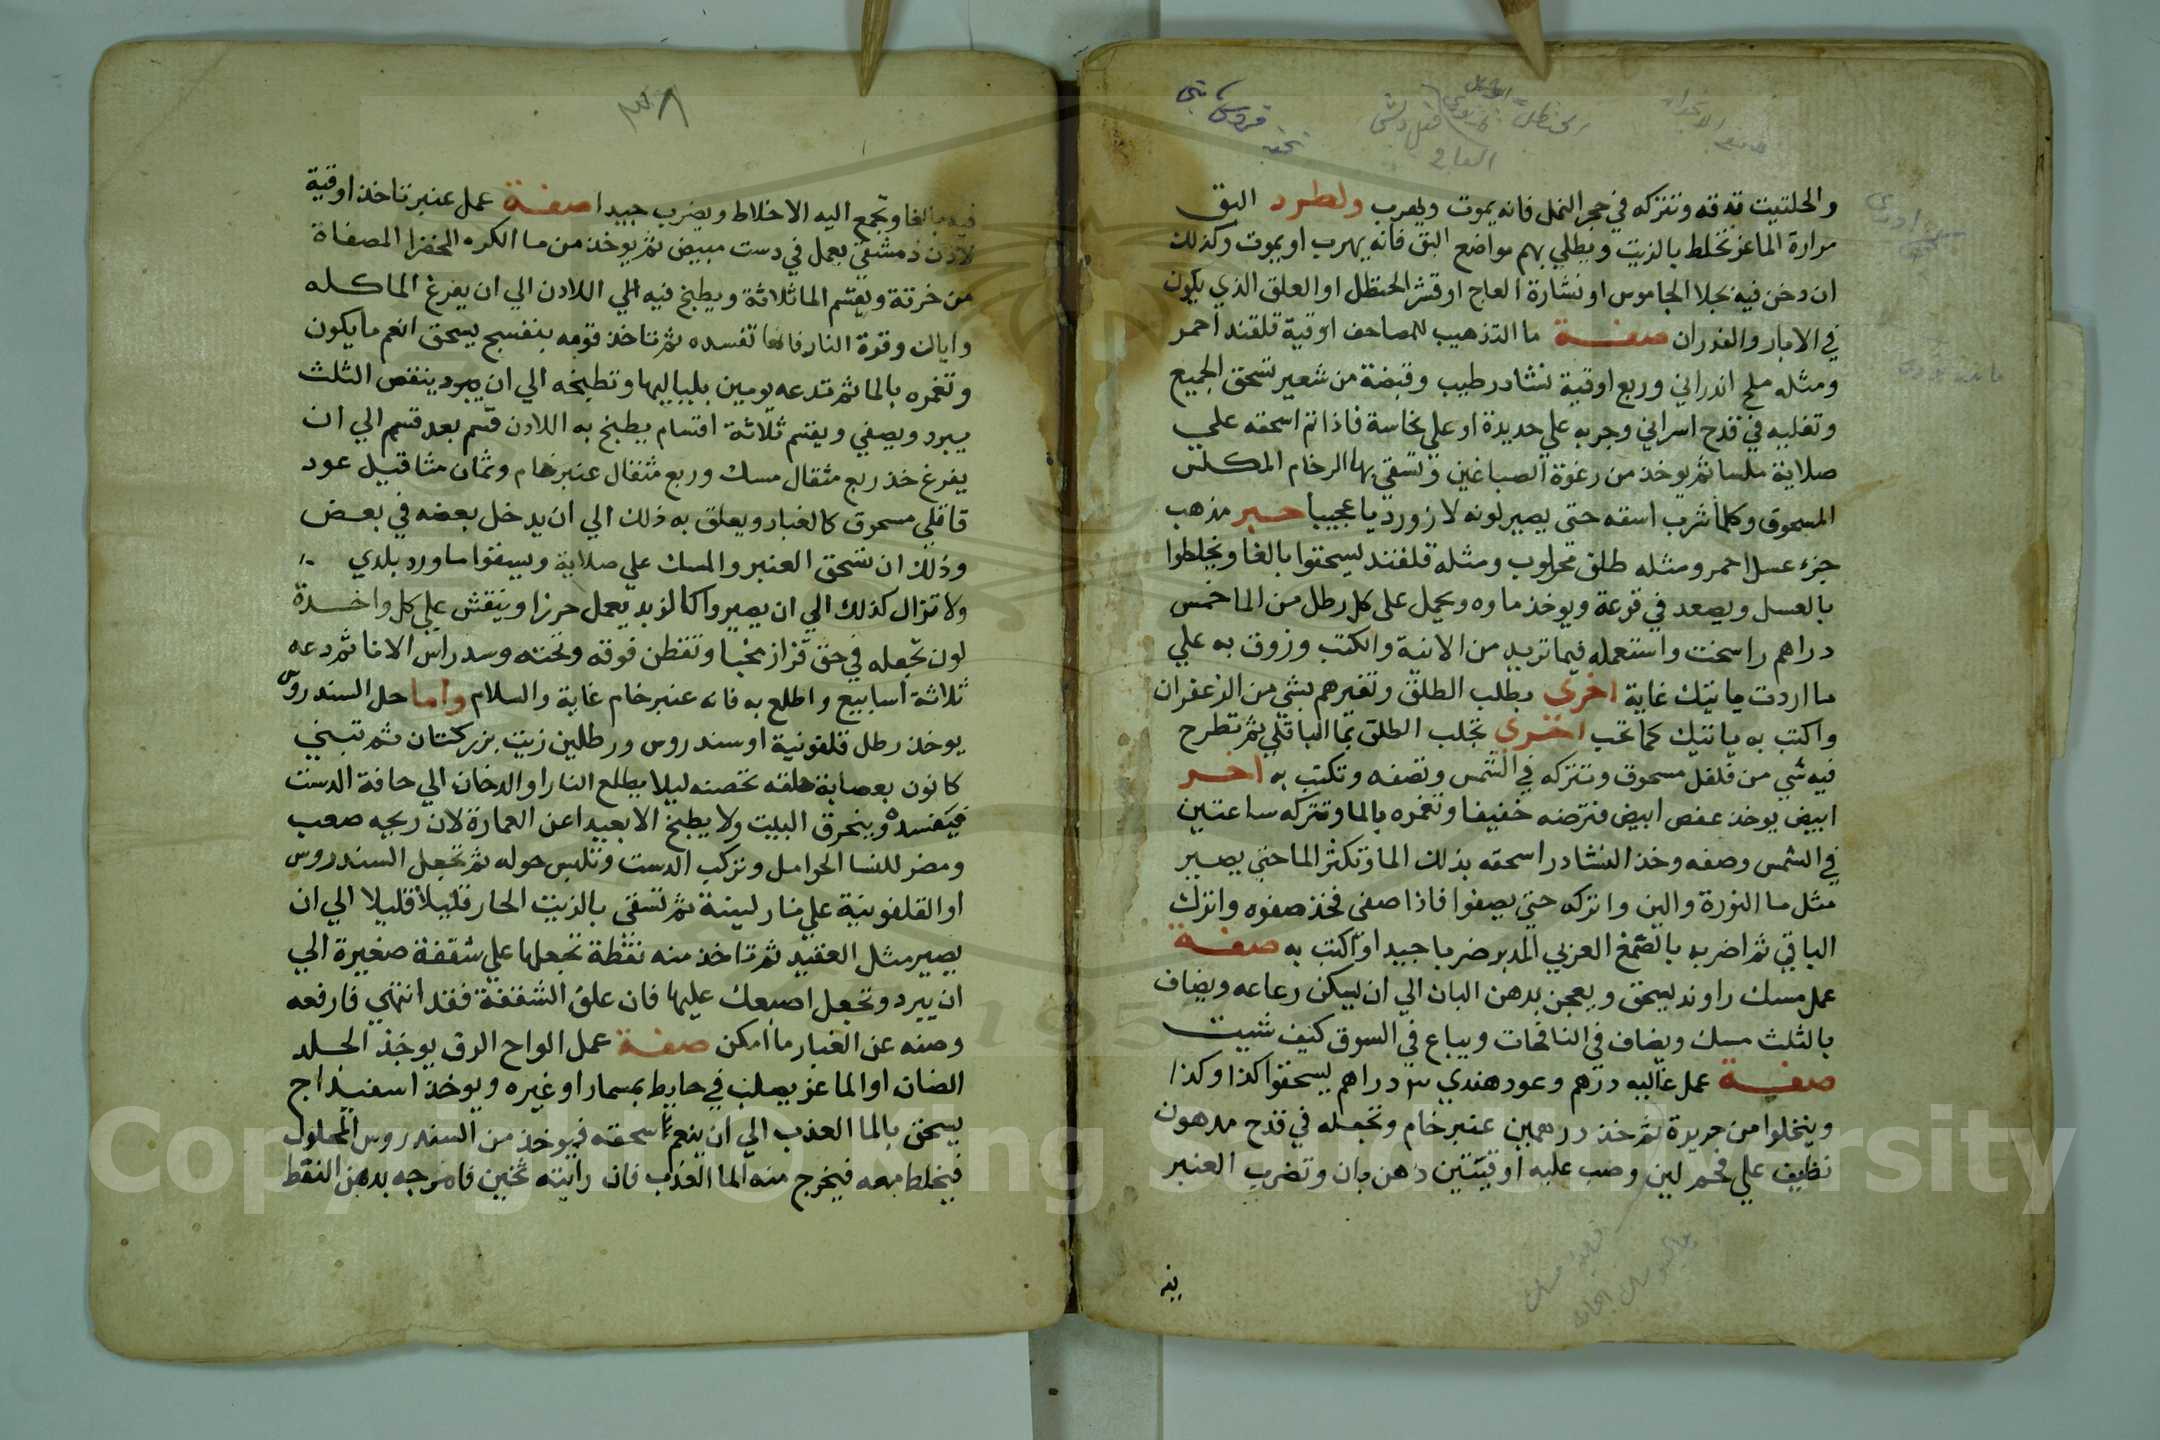 والحلتيت تدقه وتتركه في حجر النمل فانه يموت ويهرب ولطرد البق
مرارة الماعز تخلط بالزيت ويطلي بهم مواضع البق فانه يهرب او يموت وكذلك
ان دخن فيه بجلا الجاموس او نشارة العاج او قشر الحنظل او العلق الذي يكون
في الابار والغدران صفة ما التذهيب للمصاحف اوقية قلقند احمر
ومثله ملح اندراني وربع اوقية نشادر طيب وقبضة من شعير تسحق الجميع
وتغليه في قدح اسراني وجربه علي حديدة او علي نحاسة فاذا تم اسحقه علي
صلاية ملسا ثم يوخذ من رغوة الصباغين وتسقي بها الرخام المكلس
المسحوق وكلما شرب اسقه حتى يصير لونه لازورديا عجيبا حبر مذهب
جزء عسل احمر ومثله طلق محلوب ومثله قلقند يسحقوا بالغا ويخلطوا
بالعسل ويصعد في قرعة ويوخذ ماوه ويحمل على كل رطل من الما خمس
دراهم راسخت واستعمله فيما تريد من الانية والكتب وزوق به علي
ما اردت ياتيك غاية اخرى يطلب الطلق وتغيرهم بشي من الزعفران
واكتب به ياتيك كما تحب اخرى تحلب الطلق بما الباقلي ثم تطرح
فيه شي من فلفل مسحوق وتتركه في الشمس وتصفه وتكتب به اخر
ابيض يوخذ عفص ابيض فترضه خفيفا وتغمره بالما وتتركه ساعتين
في الشمس وصفه وخذ النشادر اسحقه بذلك الما وتكثر الما حتي يصير
مثل ما النورة والبن واتركه حتي يصفوا فاذا صفي فخذ صفوه واترك
الباقي ثم اضربه بالصمغ العربي المدبر ضربا جيدا واكتب به صفة
عمل مسك راوند يسحق ويعجن بدهن البان الي ان يسكن رعاعه ويضاف
بالثلث مسك ويضاف في النافجات ويباع في السوق كيف شيت
صفة عمل غاليه درهم وعود هندي ٣ دراهم يسحقوا كذا وكذا
وينخلوا من حريرة ثم خذ درهمين عنبر خام وتجعله في قدح مدهون
نظيف علي فحم لين وصب عليه اوقيتين دهن بان وتضرب العنبر
فيه بالغا وتجمع اليه الاخلاط ويضرب جيدا صفة عمل عنبر تاخذ اوقية
لادن دمشقي يعمل في دست مبيض ثم يوخذ من ما الكره الخضرا المصفاة
من خرقة ويقسم الما ثلاثة ويطبخ فيه الي اللادن الي ان يفرغ الما كله
واياك وقوة النار فانها تفسده ثم تاخذ قومه بنفسج يسحق انعم ما يكون
وتغمره بالما ثم تدعه يومين بلياليها وتطبخه الي ان ينقص الثلث
يبرد ويصفي ويقسم ثلاثة اقسام يطبخ به اللادن قسم بعد قسم الي ان
يفرغ خذ ربع مثقال مسك وربع مثقال عنبر خام وثمان مثاقيل عود
قاقلي مسحوق كالغبار ويعلق به ذلك الي ان يدخل بعضه في بعض
وذلك ان تسحق العنبر والمسك علي صلاية ويسقوا ماورد بلدي
ولا تزال كذلك الي ان يصيروا كالزبد يعمل حرزا وينقش علي كل واحدة
لون تجعله في حق قزاز مخبا وتقطن فوقه وتحته وسد راس الانا ثم دعه
ثلاثة اسابيع واطلع به فانه عنبر خام غاية والسلام واما حل السندروس
يوخذ رطل قلفونية او سندروس ورطلين زيت بزركتان ثم تبني
كانون بعصابة حلقه تحصنه ليلا يطلع النار او الدخان الي حافة الدست
فيفسده وينحرق البيت ولا يطبخ الا بعيدا عن العمارة لان ريحه صعب
ومضر للنسا الحوامل وتركب الدست وتلبس حوله ثم تجعل السندروس
او القلفونية علي نار لينة ثم تسقي بالزيت الحار قليلا قليلا الي ان
يصير مثل العقيد ثم تاخذ منه نقطة تجعلها علي شقفة صغيرة الي
ان يبرد وتجعل اصبعك عليها فان علق الشقفة فقد انتهي فارفعه
وصنه عن الغبار ما امكن صفة عمل الواح الرق يوخذ الجلد
الضان او الماعز يصلب في حايط بمسمار او غيره ويوخذ اسفيداج
يسحق بالما العذب الي ان ينعم سحقه فيوخذ من السندروس المحلول
فيخلط معه فيخرج منه الما العذب فان رايته تخين فامزجه بدهن النفط
Copyright © King Saud University